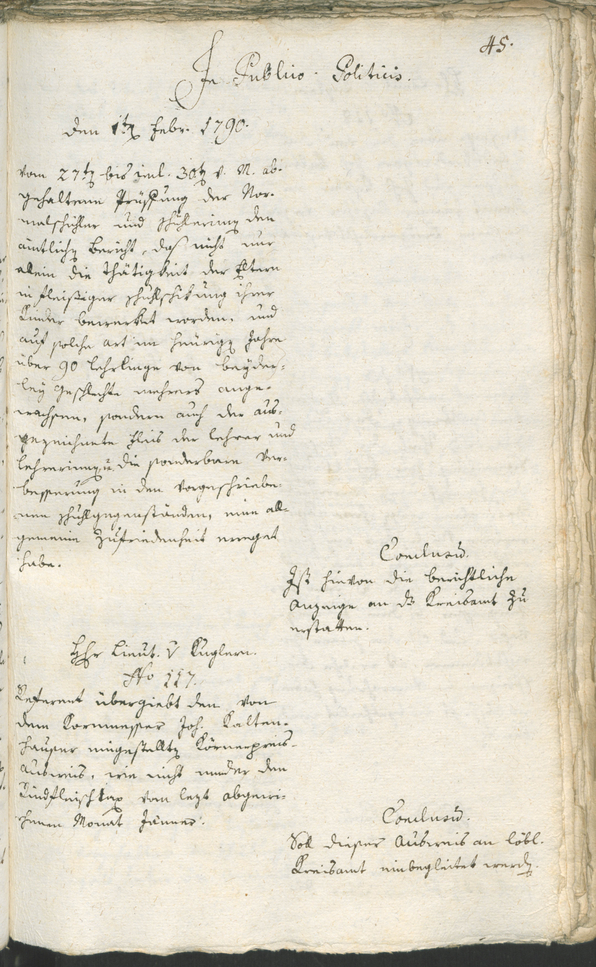 45.
In Publico Politicis.
den 1ten Febr. 1790.
Vom 27ten bis incl. 30ten v. M. ab-
gehaltene Prüffung der Nor-
malschüller und Schüllerinen den
amtlichen Bericht, daß nicht nur
allein die Thätigkeit der Eltern
in fleißiger Schullschikung ihrer
Kinder bemerket worden, und
auf solche Art im heurigen Jahre
über 90 Lehrlinge von beyder-
ley Geschlechte mehrers ange-
wachsen, sondern auch der aus-
gezeichnete Fleis der Lehrer und
Lehrerinen, die sonderbare Ver-
besserung in den vorgeschriebe-
nen Schullgegenständen, eine all-
gemeine Zufriedenheit erreget
habe.
Conclusum.
Ist hievon die berichtliche
Anzeige an das Kreisamt zu
erstatten.
Hr Lieut. v Kuglern.
No 117.
Referent übergiebt den von
dem Kornmesser Joh. Kalten-
hauser eingestellten Körnerpreis-
Ausweis, wie nicht minder den
Rindfleischtax vom lezt abgewi-
chenen Monat Jänner.
Conclusum.
Soll dieser Ausweis an löbl.
Kreisamt einbegleitet werden.